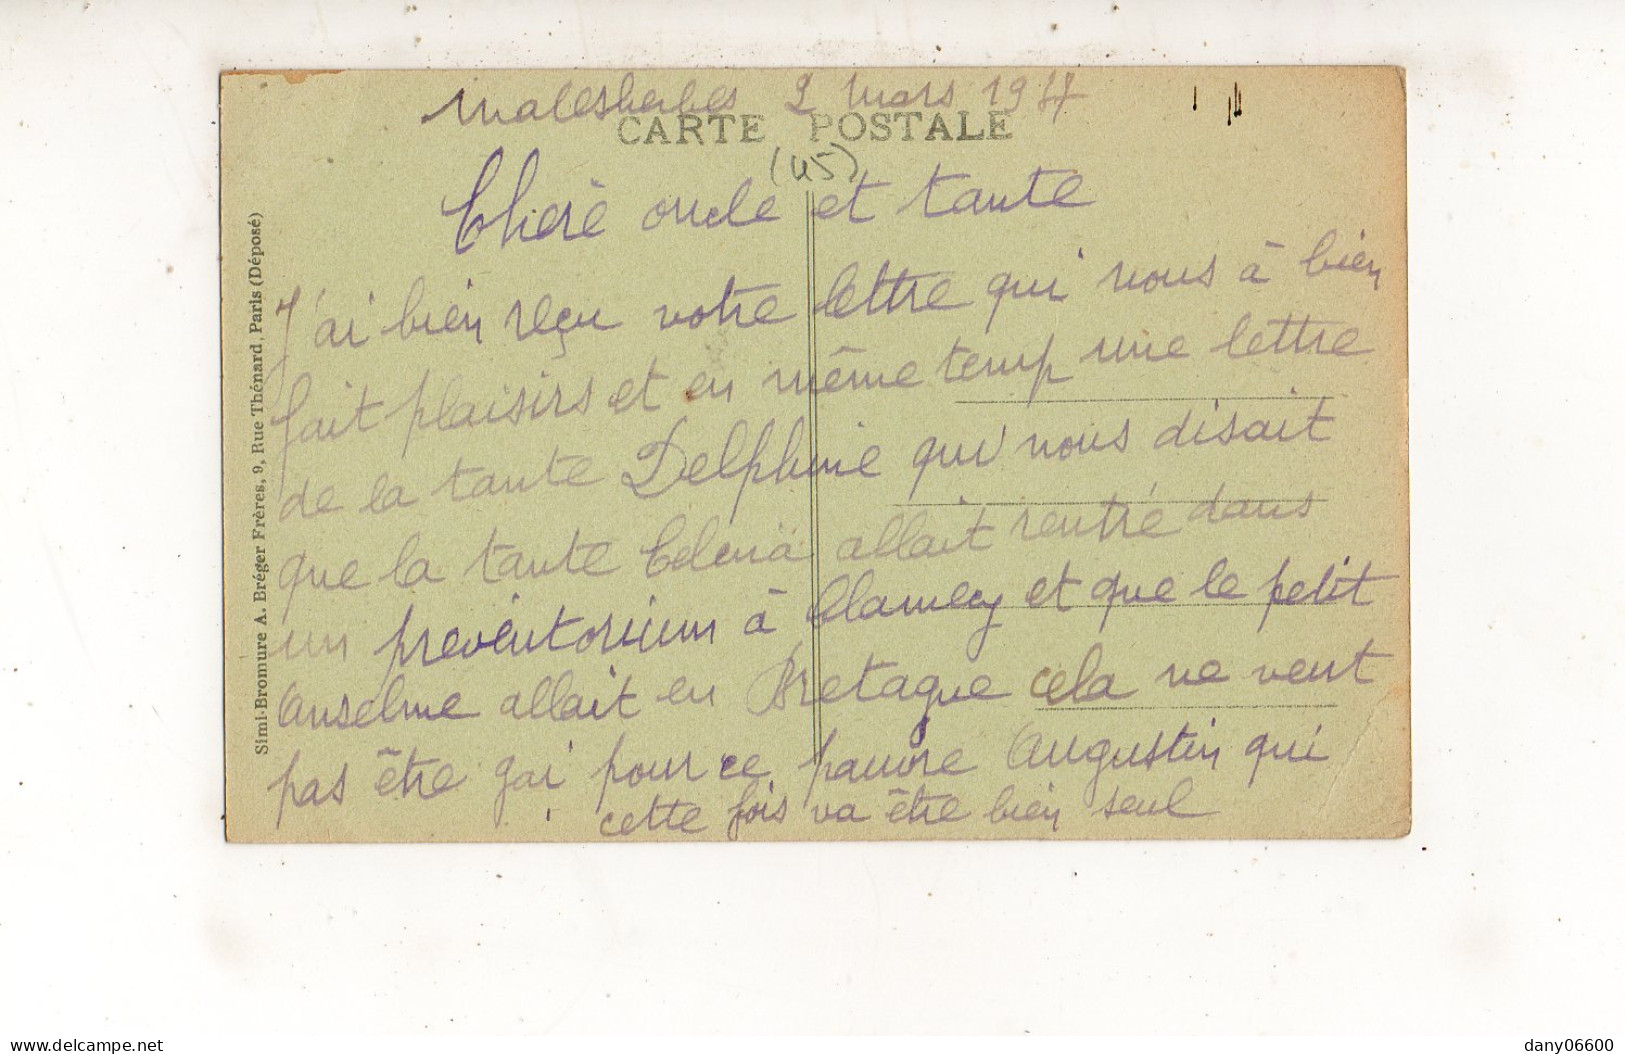 Malesherbes 2 Mars 19
CARTE POSTALE
(45)
Cheré oncle et tante
J'ai bien reçu votre lettre qui nous à bien
fait plaisirs et en même temp une lettre
de la tante Delphine qui nous disait
que la tante allait rentré dans
un préventorium à Clamecy et que le petit
Anselme allait en Bretagne cela ne veut
pas être gai pour ce pauvre Augustin qui
cette fois va être bien seul
Simi-Bromure A. Bréger Frères, 9, Rue Thénard, Paris (Déposé)
www.delcampe.net
dany06600